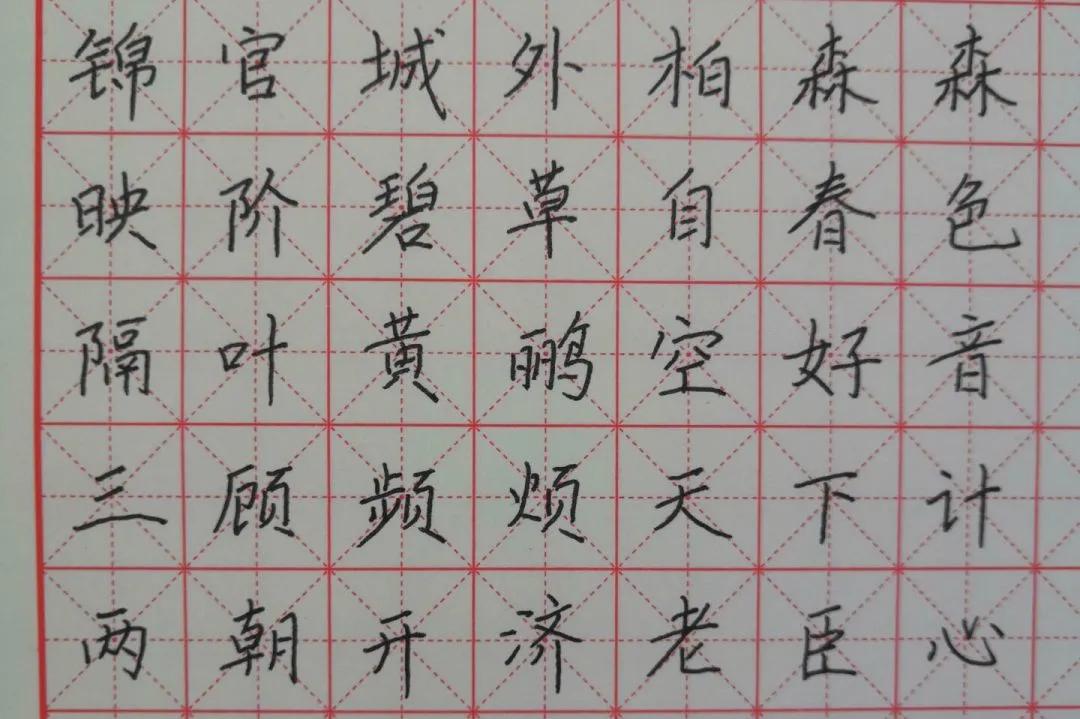 锦官城外柏森森
映阶碧草自春色
隔叶黄鹂空好音
三顾频烦天下计
两朝开济老臣心